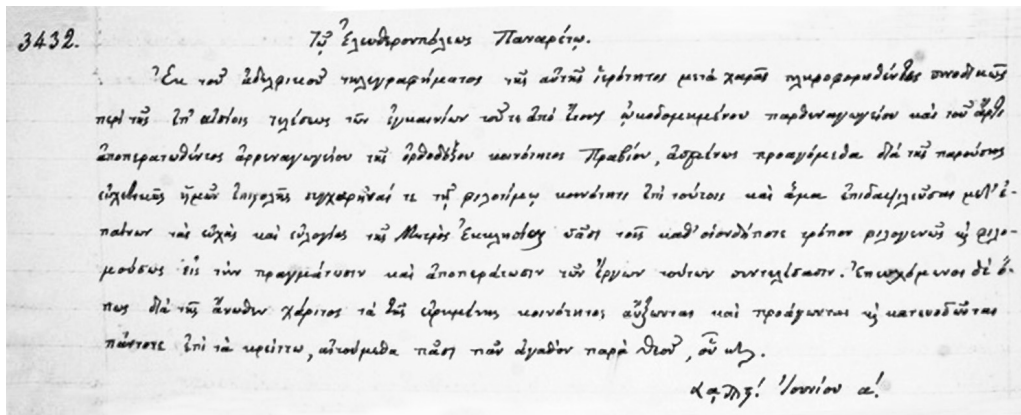 3432. Τῷ Ἐλευθερουπόλεως Παναρέτῳ.
Ἐκ τοῦ ἀδελφικοῦ τηλεγραφήματος τῆς αὐτῆς ἱερότητος μετὰ χαρᾶς πληροφορηθέντες συνοδικῶς
περὶ τῆς ἐπ' αἰσίοις τελέσεως τῶν ἐγκαινίων τοῦ τε ἀπὸ ἔτους ᾠκοδομημένου παρθεναγωγείου καὶ τοῦ ἄρτι
ἀποπερατωθέντος ἀρρεναγωγείου τῆς ὀρθοδόξου κοινότητος Πραβίου, ἀσμένως προαγόμεθα διὰ τῆς παρούσης
εὐχετικῆς ἡμῶν ἐπιστολῆς συγχαρῆναί τε τῇ φιλοτίμῳ κοινότητι ἐπὶ τούτοις καὶ ἅμα ἐπιδαψιλεῦσαι μετ' ἐ-
παίνων τὰς εὐχὰς καὶ εὐλογίας τῆς Μητρὸς Ἐκκλησίας πᾶσι τοῖς καθ' οἱονδήποτε τρόπον φιλογενῶς κ φιλο-
μούσως εἰς τὴν πραγμάτωσιν καὶ ἀποπεράτωσιν τῶν ἔργων τούτων συντελέσασιν. Ἐπευχόμενοι δὲ ὅ-
πως διὰ τῆς ἄνωθεν χάριτος τὰ τῆς εἰρημένης κοινότητος αὔξωνται καὶ προάγωνται κ κατευοδῶνται
πάντοτε ἐπὶ τὰ κρείττω, αἰτούμεθα πᾶσι πᾶν ἀγαθὸν παρὰ Θεοῦ, οὗ κτλ.
Ἰουνίου α!